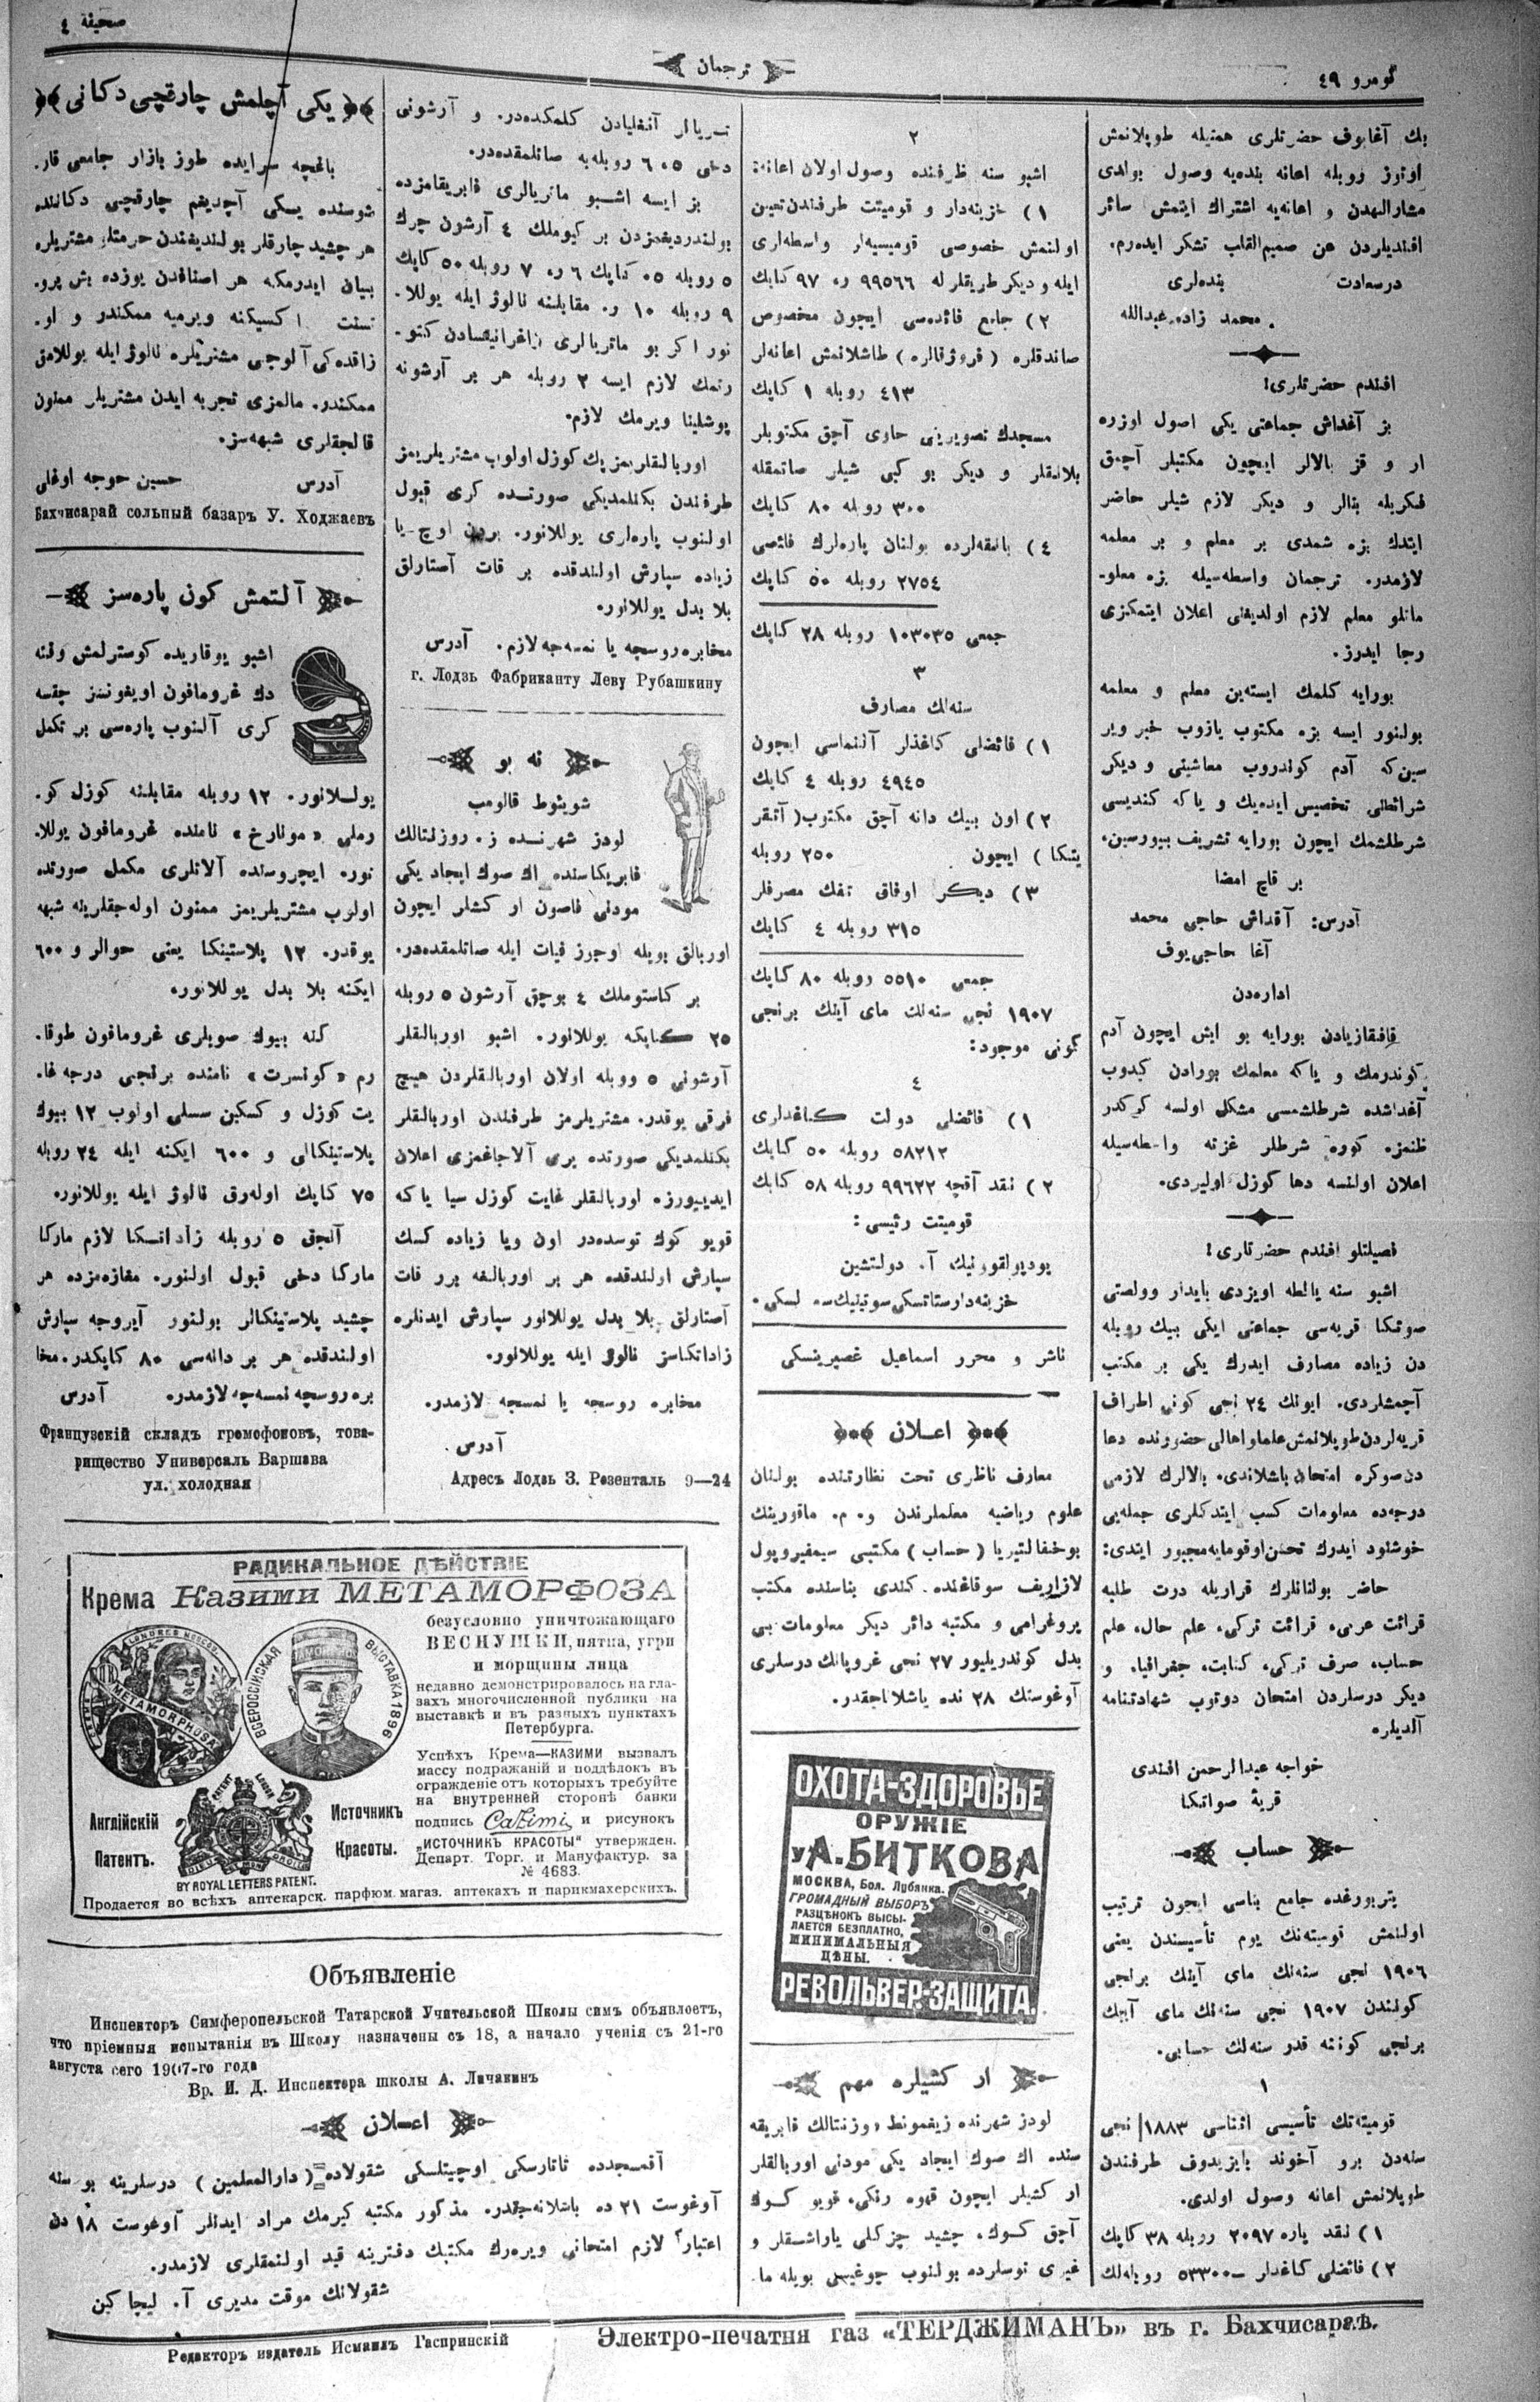 صحيفة ٤
ترجمان
نومرو ٤٩
بك آغايوف حضرتلری همتيله طوپلانمش
اوتوز روبله اعانه بنده‌يه وصول بولدی
مشاراليهدن و اعانه‌يه اشتراك ايتمش سائر
افنديلردن عن صميم القلب تشكر ايده‌رم.
درسعادت بنده‌لری
محمد زاده عبدالله
افندم حضرتلری!
بز آغداش جماعتی يكی اصول اوزره
ار و قز بالالر ايچون مكتبلر آچمق
فكريله بنالر و ديكر لازم شيلر حاضر
ايتدك بزه شمدی بر معلم و بر معلمه
لازمدر. ترجمان واسطه‌سيله بزه معلو-
ماتلو معلم لازم اولديغنی اعلان ايتمكزی
رجا ايدرز.
بورايه كلمك ايسته‌ين معلم و معلمه
بولنور ايسه بزه مكتوب يازوب خبر وير
سين كه آدم كوندروب معاشينی و ديكر
شرائطنی تخصيص ايده‌يك و ياكه كنديسی
شرطلشمك ايچون بورايه تشريف بيورسين.
بر قاچ امضا
آدرس: آقداش حاجی محمد
آغا حاجی يوف
اداره‌دن
قافقازيادن بورايه بو ايش ايچون آدم
كوندرمك و ياكه معلمك بورادن كيدوب
آغداشده شرطلشمسی مشكل اولسه كركدر
ظنمزه كوره شرطلر غزته واسطه‌سيله
اعلان اولنسه دها كوزل اوليردی.
فضيلتلو افندم حضرتلری!
اشبو سنه يالطه اويزدی بايدار وولصتی
صوتكا قريه‌سی جماعتی ايكی بيك روبله
دن زياده مصارف ايدرك يكی بر مكتب
آچمشلردی. ايونك ٢٤ نجی كونی اطراف
قريه‌لردن طوپلانمش علما و اهالی حضورنده دعا
دن صوكره امتحان باشلاندی. بالالرك لازمی
درجه‌ده معلومات كسب ايتدكلری جمله‌يی
خوشنود ايدرك تحسن اوقومايه مجبور ايتدی:
حاضر بولنانلرك قراريله درت طلبه
قرائت عربی، قرائت تركی، علم حال، علم
حساب، صرف تركی، كتابت، جغرافيا، و
ديكر درسلردن امتحان دوتوب شهادتنامه
آلديلر.
خواجه عبدالرحمن افندی
قريهٔ صواتكا
حساب
پتربورغده جامع بناسی ايچون ترتيب
اولنمش قوميته‌نك يوم تأسيسندن يعنی
١٩٠٦ نجی سنه‌نك مای آينك برنجی
كونندن ١٩٠٧ نجی سنه‌نك مای آيينك
برنجی كوننه قدر سنه‌لك حسابی.
١
قوميته‌نك تأسيسی اثناسی ١٨٨٣ نجی
سنه‌دن برو آخوند بايزيدوف طرفندن
طوپلانمش اعانه وصول اولدی.
١) نقد پاره ٢٠٩٧ روبله ٣٨ كاپك
٢) فائضلی كاغدلر — ٥٣٣٠٠ روبله‌لك
٢
اشبو سنه ظرفنده وصول اولان اعانه:
١) خزينه‌دار و قوميتت طرفندن تعيين
اولنمش خصوصی قوميسيه‌لر واسطه‌لری
ايله و ديكر طريقلرله ٩٩٥٦٦ ر. ٩٧ كاپك
٢) جامع فائده‌سی ايچون مخصوص
صاندقلره (قروژقالره) طاشلانمش اعانه‌لر
٤١٣ روبله ١ كاپك
مسجدك تصويرينی حاوی آچق مكتوبلر
بلانقلر و ديكر بو كبی شيلر صاتمقله
٣٠٠ روبله ٨٠ كاپك
٤) بانقه‌لرده بولنان پاره‌لرك فائضی
٢٧٥٤ روبله ٥٠ كاپك
جمعی ١٠٣٠٣٥ روبله ٢٨ كاپك
٣
سنه‌لك مصارف
١) فائضلی كاغدلر آلنماسی ايچون
٤٩٤٥ روبله ٤ كاپك
٢) اون بيك دانه آچق مكتوب (آتقر
يتكا) ايچون ٢٥٠ روبله
٣) ديكر اوفاق تفك مصرفلر
٣١٥ روبله ٤ كاپك
جمعی ٥٥١٠ روبله ٨٠ كاپك
١٩٠٧ نجی سنه‌نك مای آينك برنجی
كونی موجود:
٤
١) فائضلی دولت كاغدلری
٥٨٢١٢ روبله ٥٠ كاپك
٢) نقد آقچه ٩٩٦٢٢ روبله ٥٨ كاپك
قوميتت رئيسی:
پودپولقوونيك آ. دولتشين
ناشر و محرر اسماعيل غصپرينسكی
اعلان
معارف ناظری تحت نظارتنده بولنان
علوم رياضيه معلملرندن و. م. ماقورينك
بوخغالتيريا (حساب) مكتبی سيمفيروپول
لازاريف سوقاغنده كندی بناسنده مكتب
پروغرامی و مكتبه دائر ديكر معلومات بی
بدل كوندريليور ٢٧ نجی غروپانك درسلری
آوغوستك ٢٨ نده باشلاناجقدر.
ОХОТА-ЗДОРОВЬЕ
ОРУЖІЕ
у А.БИТКОВА
МОСКВА, Бол. Лубянка.
ГРОМАДНЫЙ ВЫБОРЪ
РАЗЦѢНОКЪ ВЫСЫ-
ЛАЕТСЯ БЕЗПЛАТНО,
МИНИМАЛЬНЫЯ
ЦѢНЫ.
РЕВОЛЬВЕР-ЗАЩИТА.
ار كشيلره مهم
لودز شهرنده زيغمونط روزنتالك فابريقه
سنده اك صوك ايجاد يكی مودنی اوربالقلر
ار كشيلر ايچون قهوه رنكی، قويو كوك
آچق كوك، چشيد چزكلی ياراشقلر و
غيری توسلرده بولنوب چوغيسی بويله ما-
تريالر آنغليادن كلمكده‌در. و آرشونی
دخی ٥، ٦ روبله‌يه صاتلمقده‌در.
بز ايسه اشبو ماتريالری فابريقامزده
بولندرديغمزدن بر كيوملك ٤ آرشون چرك
٥ روبله ٥٠ كاپك ٦ ر. ٧ روبله ٥٠ كاپك
٩ روبله ١٠ ر. مقابلنه نالوژ ايله يوللا-
نور اكر بو ماتريالری زاغرانيتسادن كتو-
رتمك لازم ايسه ٢ روبله هر بر آرشونه
پوشلينا ويرمك لازم.
اوربالقلريمز پك كوزل اولوب مشتريلريمز
طرفندن بكنلمديكی صورتده كری قبول
اولنوب پاره‌لری يوللانور. بردن اوچ يا
زياده سپارش اولندقده بر قات آستارلق
بلا بدل يوللانور.
مخابره روسچه يا نمسه‌جه لازم. آدرس
г. Лодзь Фабриканту Леву Рубашкину
نه بو
شويئوط قالومب
لودز شهرنده ز. روزنتالك
فابريكاسنده اك صوك ايجاد يكی
مودنی فاصون ار كشلر ايچون
اوربالق بويله اوجرز فيات ايله صاتلمقده‌در.
بر كاستوملك ٤ بوچق آرشون ٥ روبله
٢٥ كاپكه يوللانور. اشبو اوربالقلر
آرشونی ٥ روبله اولان اوربالقلردن هيچ
فرقی يوقدر. مشتريلرمز طرفندن اوربالقلر
بكنلمديكی صورتده بری آلاجاغمزی اعلان
ايدييورز. اوربالقلر غايت كوزل سيا ياكه
قويو كوك توسده‌در اون ويا زياده كسك
سپارش اولندقده هر بر اوربالغه برر قات
آستارلق بلا بدل يوللانور سپارش ايدنلره
زاداتكاسز نالوژ ايله يوللانور.
مخابره روسجه يا نمسجه لازمدر.
آدرس
Адресъ Лодзь З. Розенталь 9—24
يكی آچلمش چارقچی دكانی
باغچه سرايده طوز بازار جامعی قار-
شوسنده يكی آچديغم چارقچی دكاننده
هر چشيد چارقلر بولنديغندن حرمتلو مشتريلره
بيان ايدرمكه هر اصنافدن يوزده بش پرو-
تسنت اكسيكنه ويرميه ممكندر و او-
زاقده‌كی آلوجی مشتريلره نالوژ ايله يوللامق
ممكندر. مالمزی تجربه ايدن مشتريلر ممنون
قالجقلری شبهه‌سز.
آدرس حسين خوجه اوغلی
Бахчисарай сольный базаръ У. Ходжаевъ
آلتمش كون پاره‌سز
اشبو يوقاريده كوسترلمش وقته
دك غرومافون اويغونسز چقسه
كری آلنوب پاره‌سی بر تكمل
يوللانور. ١٢ روبله مقابلنه كوزل كو-
رملی «مونارخ» نامنده غرومافون يوللا-
نور. ايچروسنده آلاتلری مكمل صورتده
اولوب مشتريلريمز ممنون اوله‌جقلرينه شبهه
يوقدر. ١٢ پلاستينكا يعنی حوالر و ٦٠٠
ايكنه بلا بدل يوللانور.
كنه بيوك صوبلری غرومافون طوقا-
رم «كونسرت» نامنده برنجی درجه غا-
يت كوزل و كسكين سسلی اولوب ١٢ بيوك
پلاستينكالی و ٦٠٠ ايكنه ايله ٢٤ روبله
٧٥ كاپك اوله‌رق نالوژ ايله يوللانور.
آنجق ٥ روبله زاداتكا لازم ماركا
ماركا دخی قبول اولنور. مغازه‌مزده هر
چشيد پلاستينكالر بولنور آيروجه سپارش
اولندقده هر بر دانه‌سی ٨٠ كاپكدر. مخا
بره روسچه نمسه‌چه لازمدر. آدرس
Французскій складъ громофоновъ, това-
рищество Универсаль Варшава
ул. холодная
РАДИКАЛЬНОЕ ДѢЙСТВІЕ
Крема Казими МЕТАМОРФОЗА
безусловно уничтожающаго
ВЕСНУШКИ, пятна, угри
и морщины лица
недавно демонстрировалось на гла-
захъ многочисленной публики на
выставкѣ и въ разныхъ пунктахъ
Петербурга.
Успѣхъ Крема—КАЗИМИ вызвалъ
массу подражаній и поддѣлокъ въ
огражденіе отъ которыхъ требуйте
на внутренней сторонѣ банки
подпись Cazimi и рисунокъ
„ИСТОЧНИКЪ КРАСОТЫ“ утвержден.
Департ. Торг. и Мануфактур. за
№ 4683.
METAMORPHOSA
ВСЕРОССІЙСКАЯ ВЫСТАВКА 1896
Англійскій
Патентъ.
Источникъ
Красоты.
BY ROYAL LETTERS PATENT.
Продается во всѣхъ аптекарск. парфюм. магаз. аптекахъ и парикмахерскихъ.
Объявленіе
Инспекторъ Симферопельской Татарской Учительской Школы симъ объявлоетъ,
что пріемныя испытанія въ Школу назначены съ 18, а начало ученія съ 21-го
августа сего 1907-го года
Вр. И. Д. Инспектора школы А. Личакинъ
اعلان
آقمسجدده تاتارسكی اوچيتلسكی شقولاده (دارالمعلمين) درسلرينه بو سنه
آوغوست ٢١ ده باشلانه‌جقدر. مذكور مكتبه كيرمك مراد ايدنلر آوغوست ١٨ دن
اعتباراً لازم امتحانی ويره‌رك مكتبك دفترينه قيد اولنمقلری لازمدر.
شقولانك موقت مديری آ. ليچاكين
Редакторъ издатель Исмаилъ Гаспринскій
Электро-печатня газ «ТЕРДЖИМАНЪ» въ г. Бахчисараѣ.